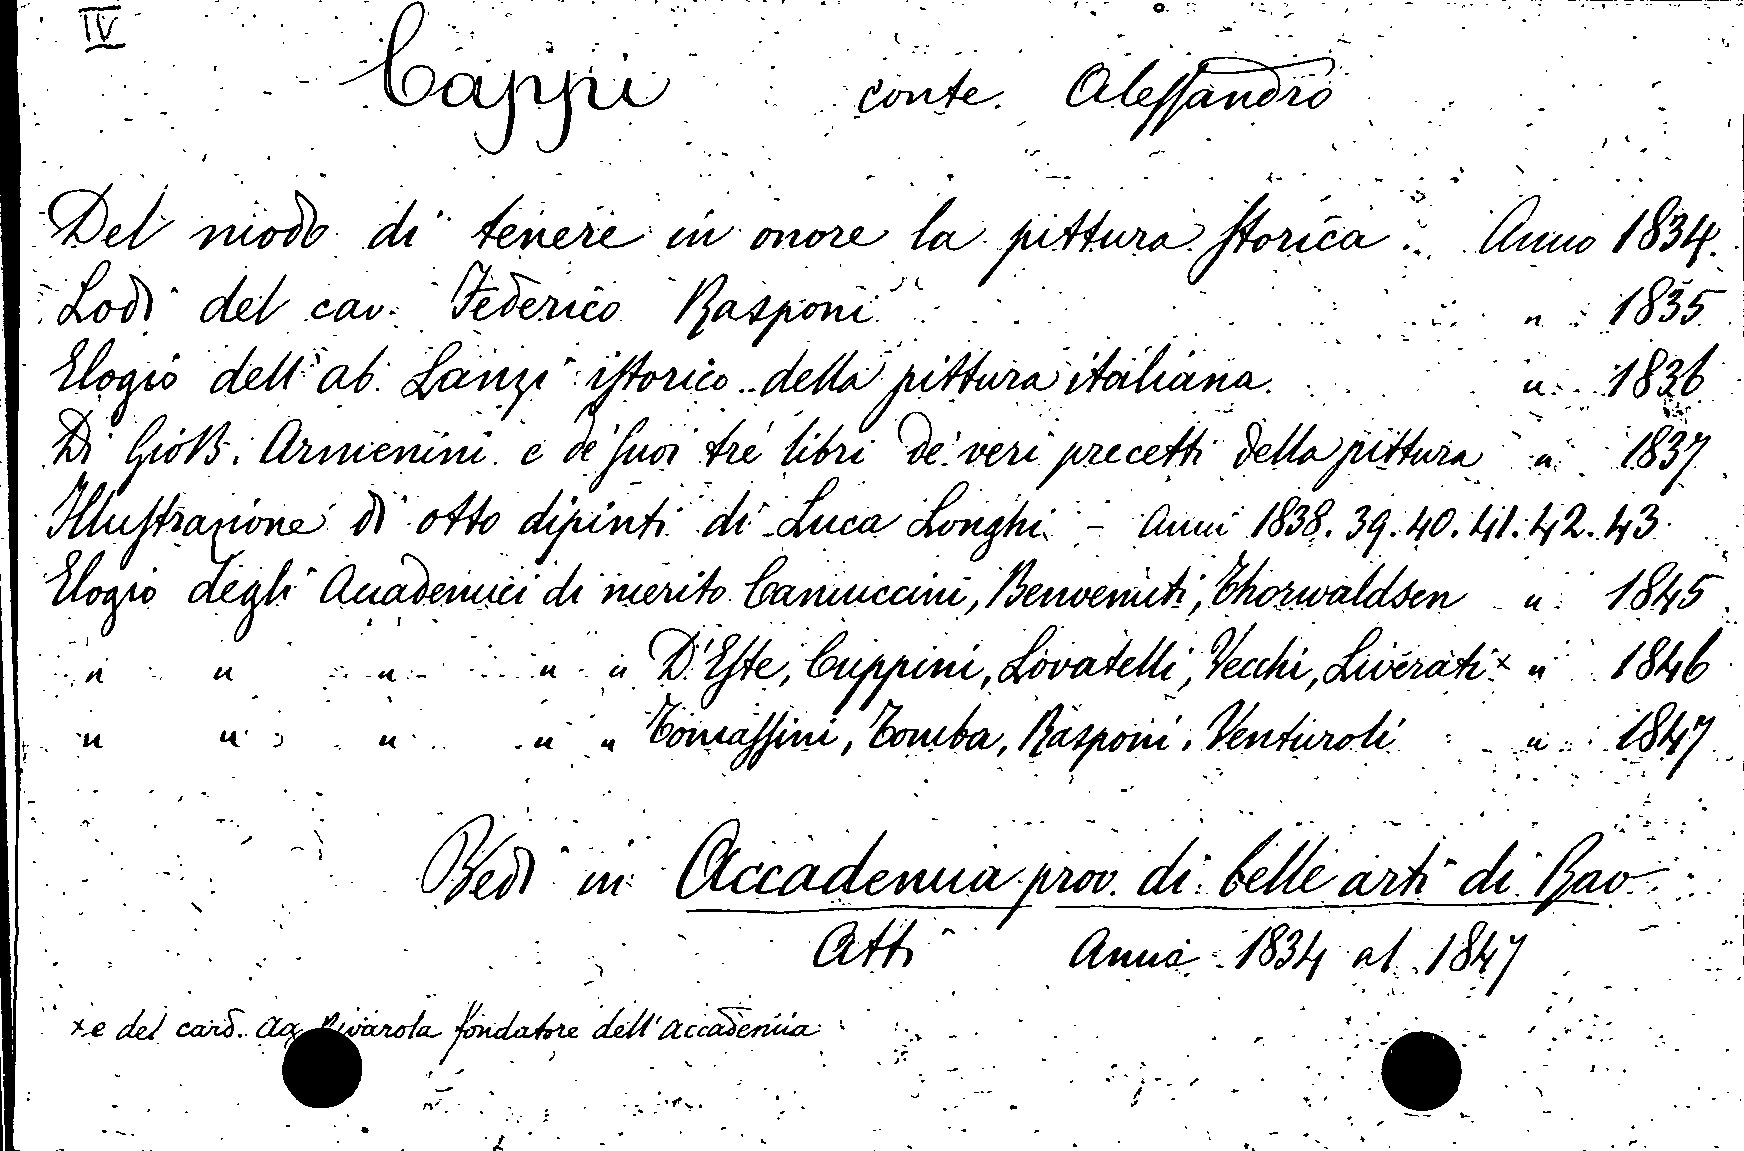 IV
Cappi conte. Alessandro
Del modo di tenere in onore la pittura storica. Anno 1834.
Lodi del cav. Federico Rasponi " 1835
Elogio dell'ab. Lanzi istorico della pittura italiana. " 1836
Di Gio B. Armenini e de' suoi tre libri de' veri precetti della pittura " 1837
Illustrazione di otto dipinti di Luca Longhi - Anni 1838. 39. 40. 41. 42. 43.
Elogio degli Accademici di merito Camuccini, Benvenuti, Thorwaldsen " 1845
" " " " " D'Este, Cuppini, Lovatelli, Vecchi, Liverati x " 1846
" " " " " Tomassini, Tomba, Rasponi, Venturoli " 1847
Vedi in Accademia prov. di belle arti di Rav.
Atti Anno 1834 al 1847
x e del card. Ag. Rivarola fondatore dell'accademia